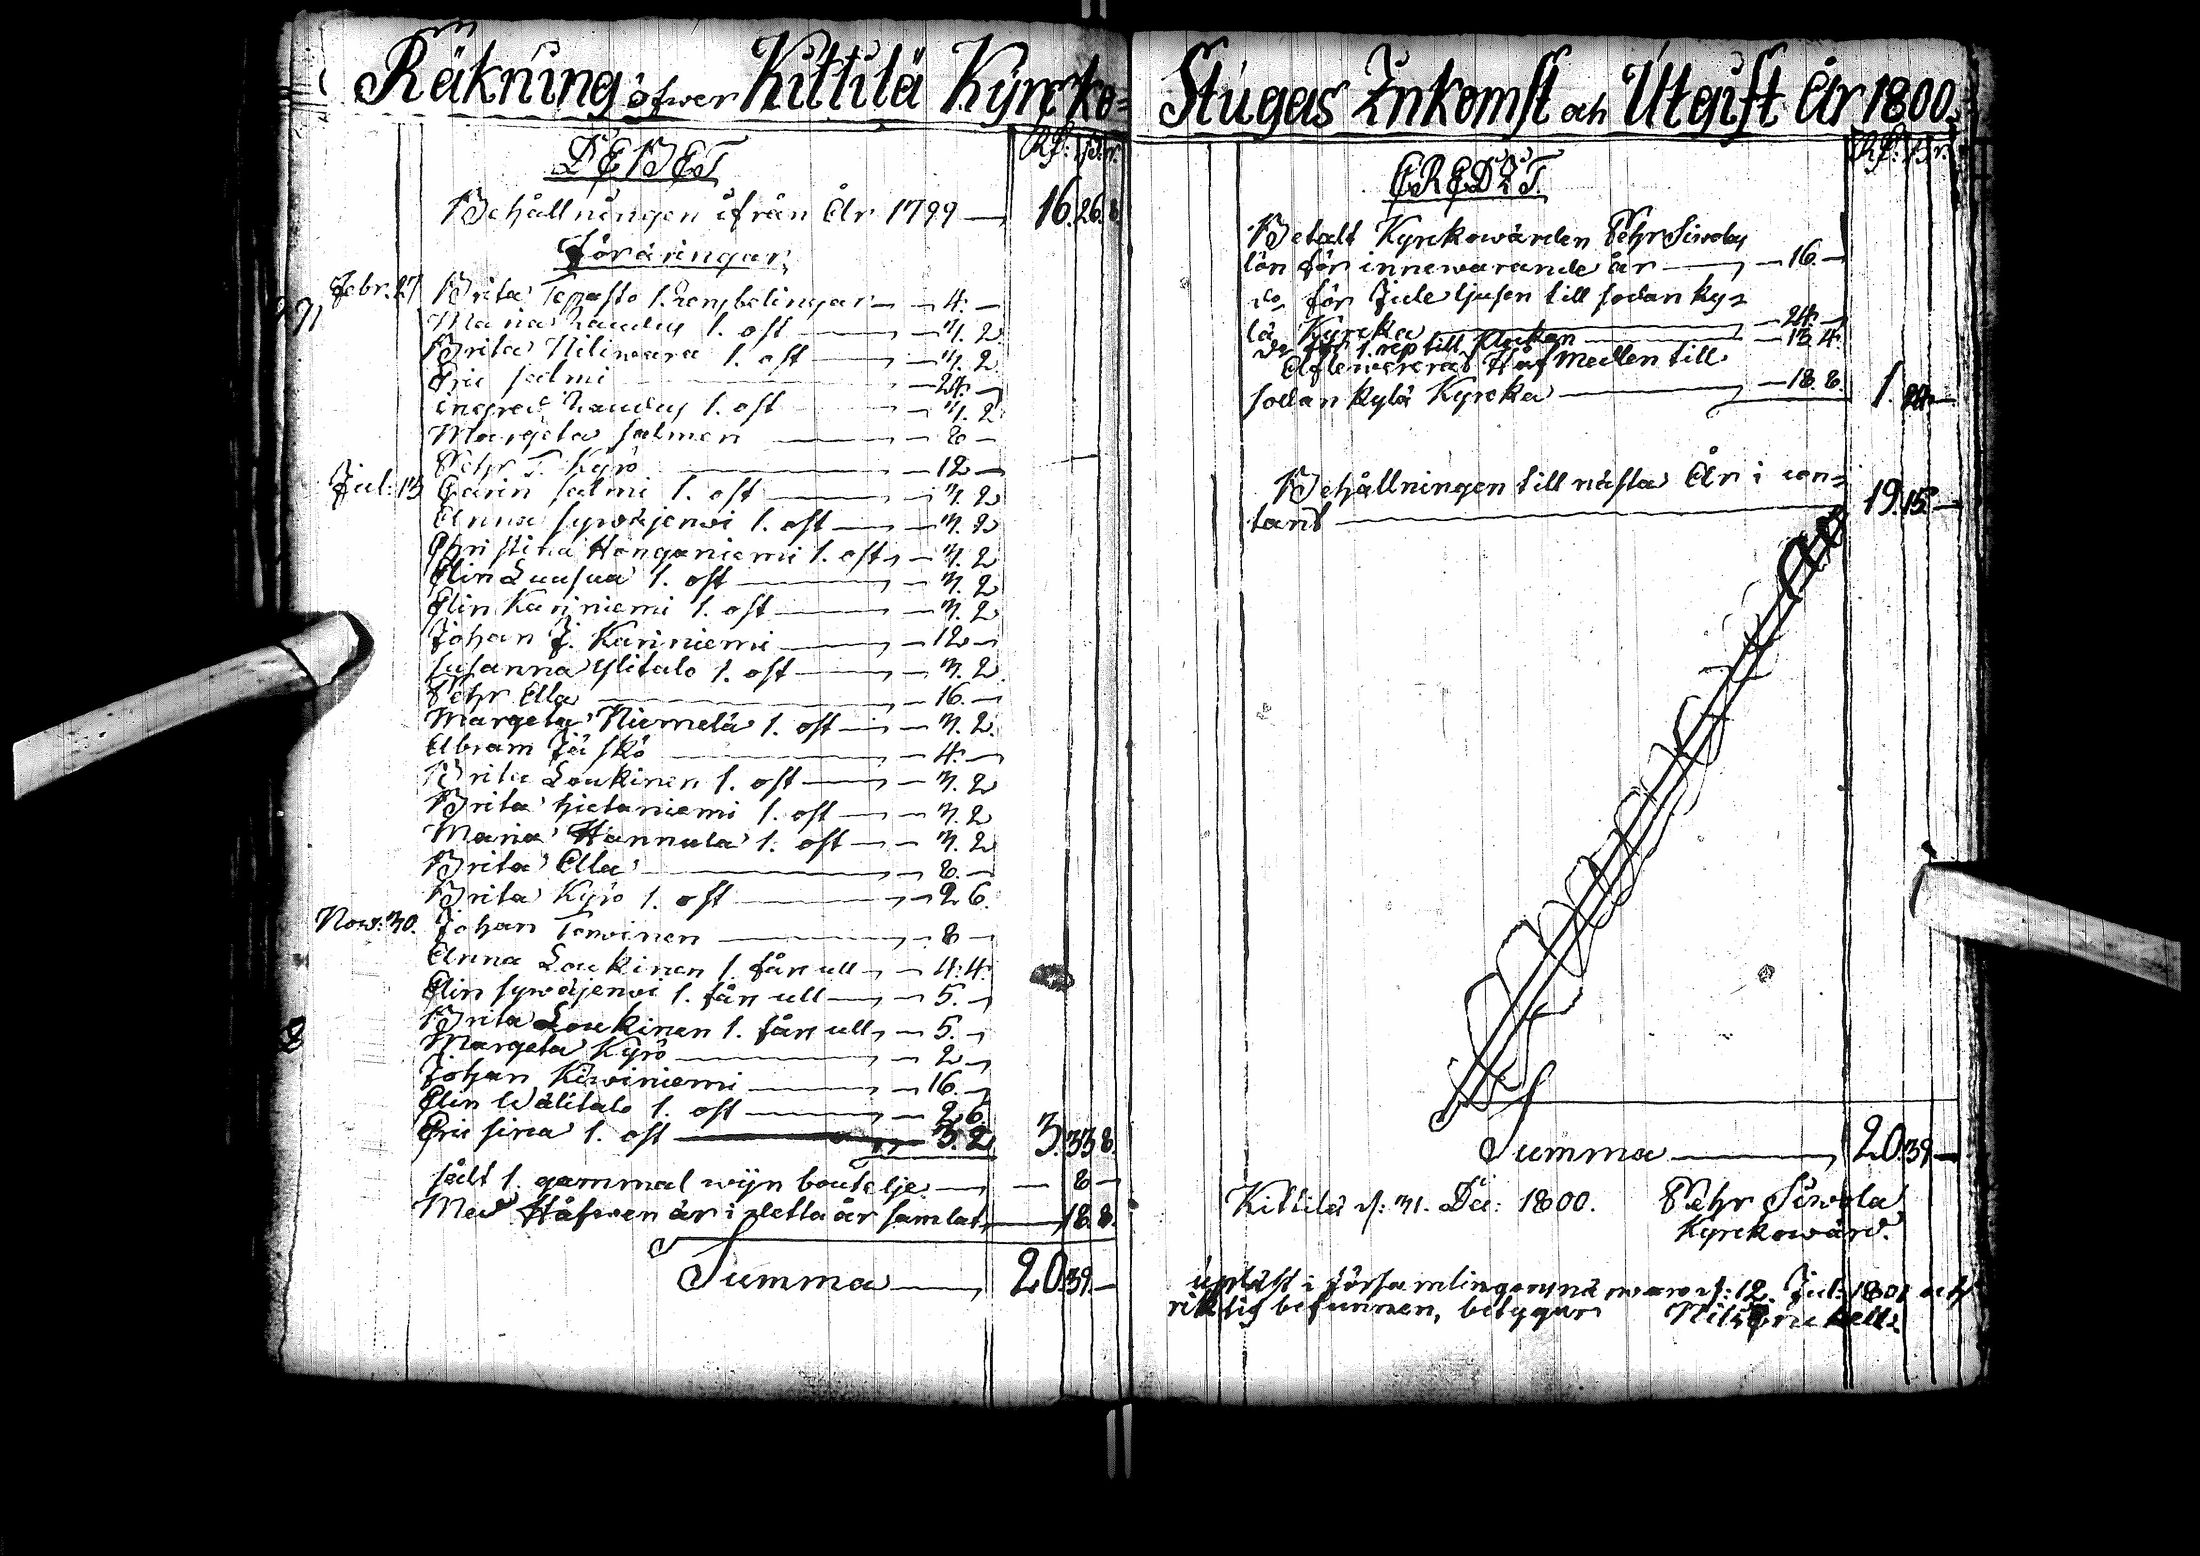 Räkning öfwer Kittilä Kyrcko=
DEBET
Rd: sk: r.
Behållningen ifrån År 1799 — 16. 26. 8
Föräringar,
Febr. 27 Brita Tepasto 1. — 4. —
Maria 1. ost — 3. 2
Brita Niliwara 1. ost — 3. 2
Eric Salmi — 24. —
Ingred 1. ost — 3. 2
Margeta Salmen — 8 —
Pehr T. Kyrö — 12 —
Jul: 13 Carin Salmi 1. ost — 3. 2
Anna Sywäjerwi 1. ost — 3. 2
Christina Honganiemi 1. ost — 3. 2
Elin Luusua 1. ost — 3. 2
Elin Kariniemi 1. ost — 3. 2
Johan J. Kariniemi — 12 —
Susanna Ylitalo 1. ost — 3. 2
Pehr Alla — 16. —
Margeta Niemelä 1. ost — 3. 2
Abram Jääskö — 4. —
Brita Loukinen 1. ost — 3. 2
Brita hietaniemi 1. ost — 3. 2
Maria Hannula 1. ost — 3. 2
Brita Alla — 8. —
Brita Kyrö 1. ost — 2 6.
Now: 30. Johan Torwinen — 8 —
Anna Loukinen 1. får ull — 4. 4.
Elin Sywäjerwi 1. får ull — 5. —
Brita Loukinen 1. får ull — 5. —
Margeta Kyrö — 2 —
Johan Kiwiniemi — 16. —
Elin Wälitalo 1. ost — 2 6.
Eric Sirca 1. ost — 3. 2 3. 33 8.
Sålt 1. gammal wijn boutelje — 8 —
Med Håfwen är i detta år samlat — 18. 8.
Summa — 20. 39. —
Stugas Inkomst och Utgift År 1800.
CREDIT.
Betalt Kyrckowärden Pehr Siwolas
lön för innewarande år — 16. —
do för Jule ljusen till sodanky=
lä Kyrcka — 24. —
do för 1. rep till klockan — 13 4.
Aflewererad Håf Medlen till
sodankylä Kyrcka — 18. 8. 1. 24. —
Behållningen till nästa År i con=
tant — 19. 15. —
Summa — 20. 39. —
Kittilä d: 31. Dec: 1800. Pehr Siwola
Kyrckowärd.
upläst i församlingens närwaro d: 12. Jul: 1801 och
riktig befunnen, betygar Nils